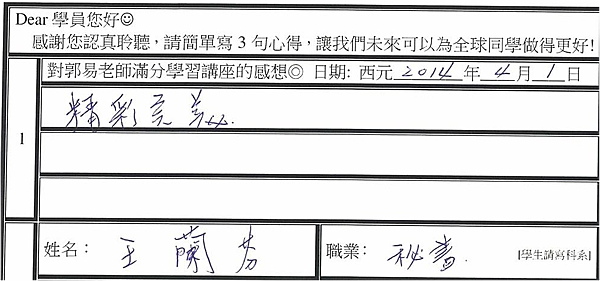 Dear 學員您好☺
感謝您認真聆聽,請簡單寫 3 句心得,讓我們未來可以為全球同學做得更好!
對郭易老師滿分學習講座的感想◎ 日期: 西元 2014 年 4 月 1 日
精彩完美
1
姓名: 王蘭芬 職業: 秘書. [學生請寫科系]